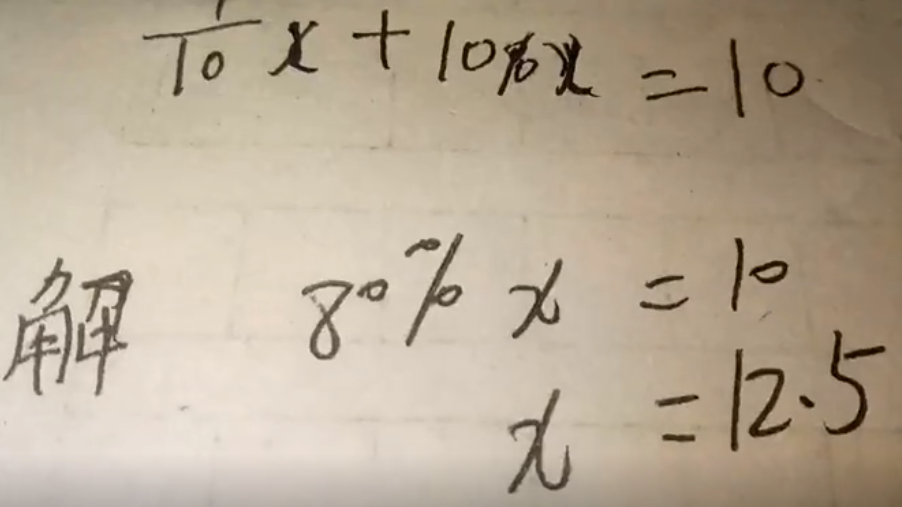 /10 x + 10%x = 10
解 80% x = 10
x = 12.5